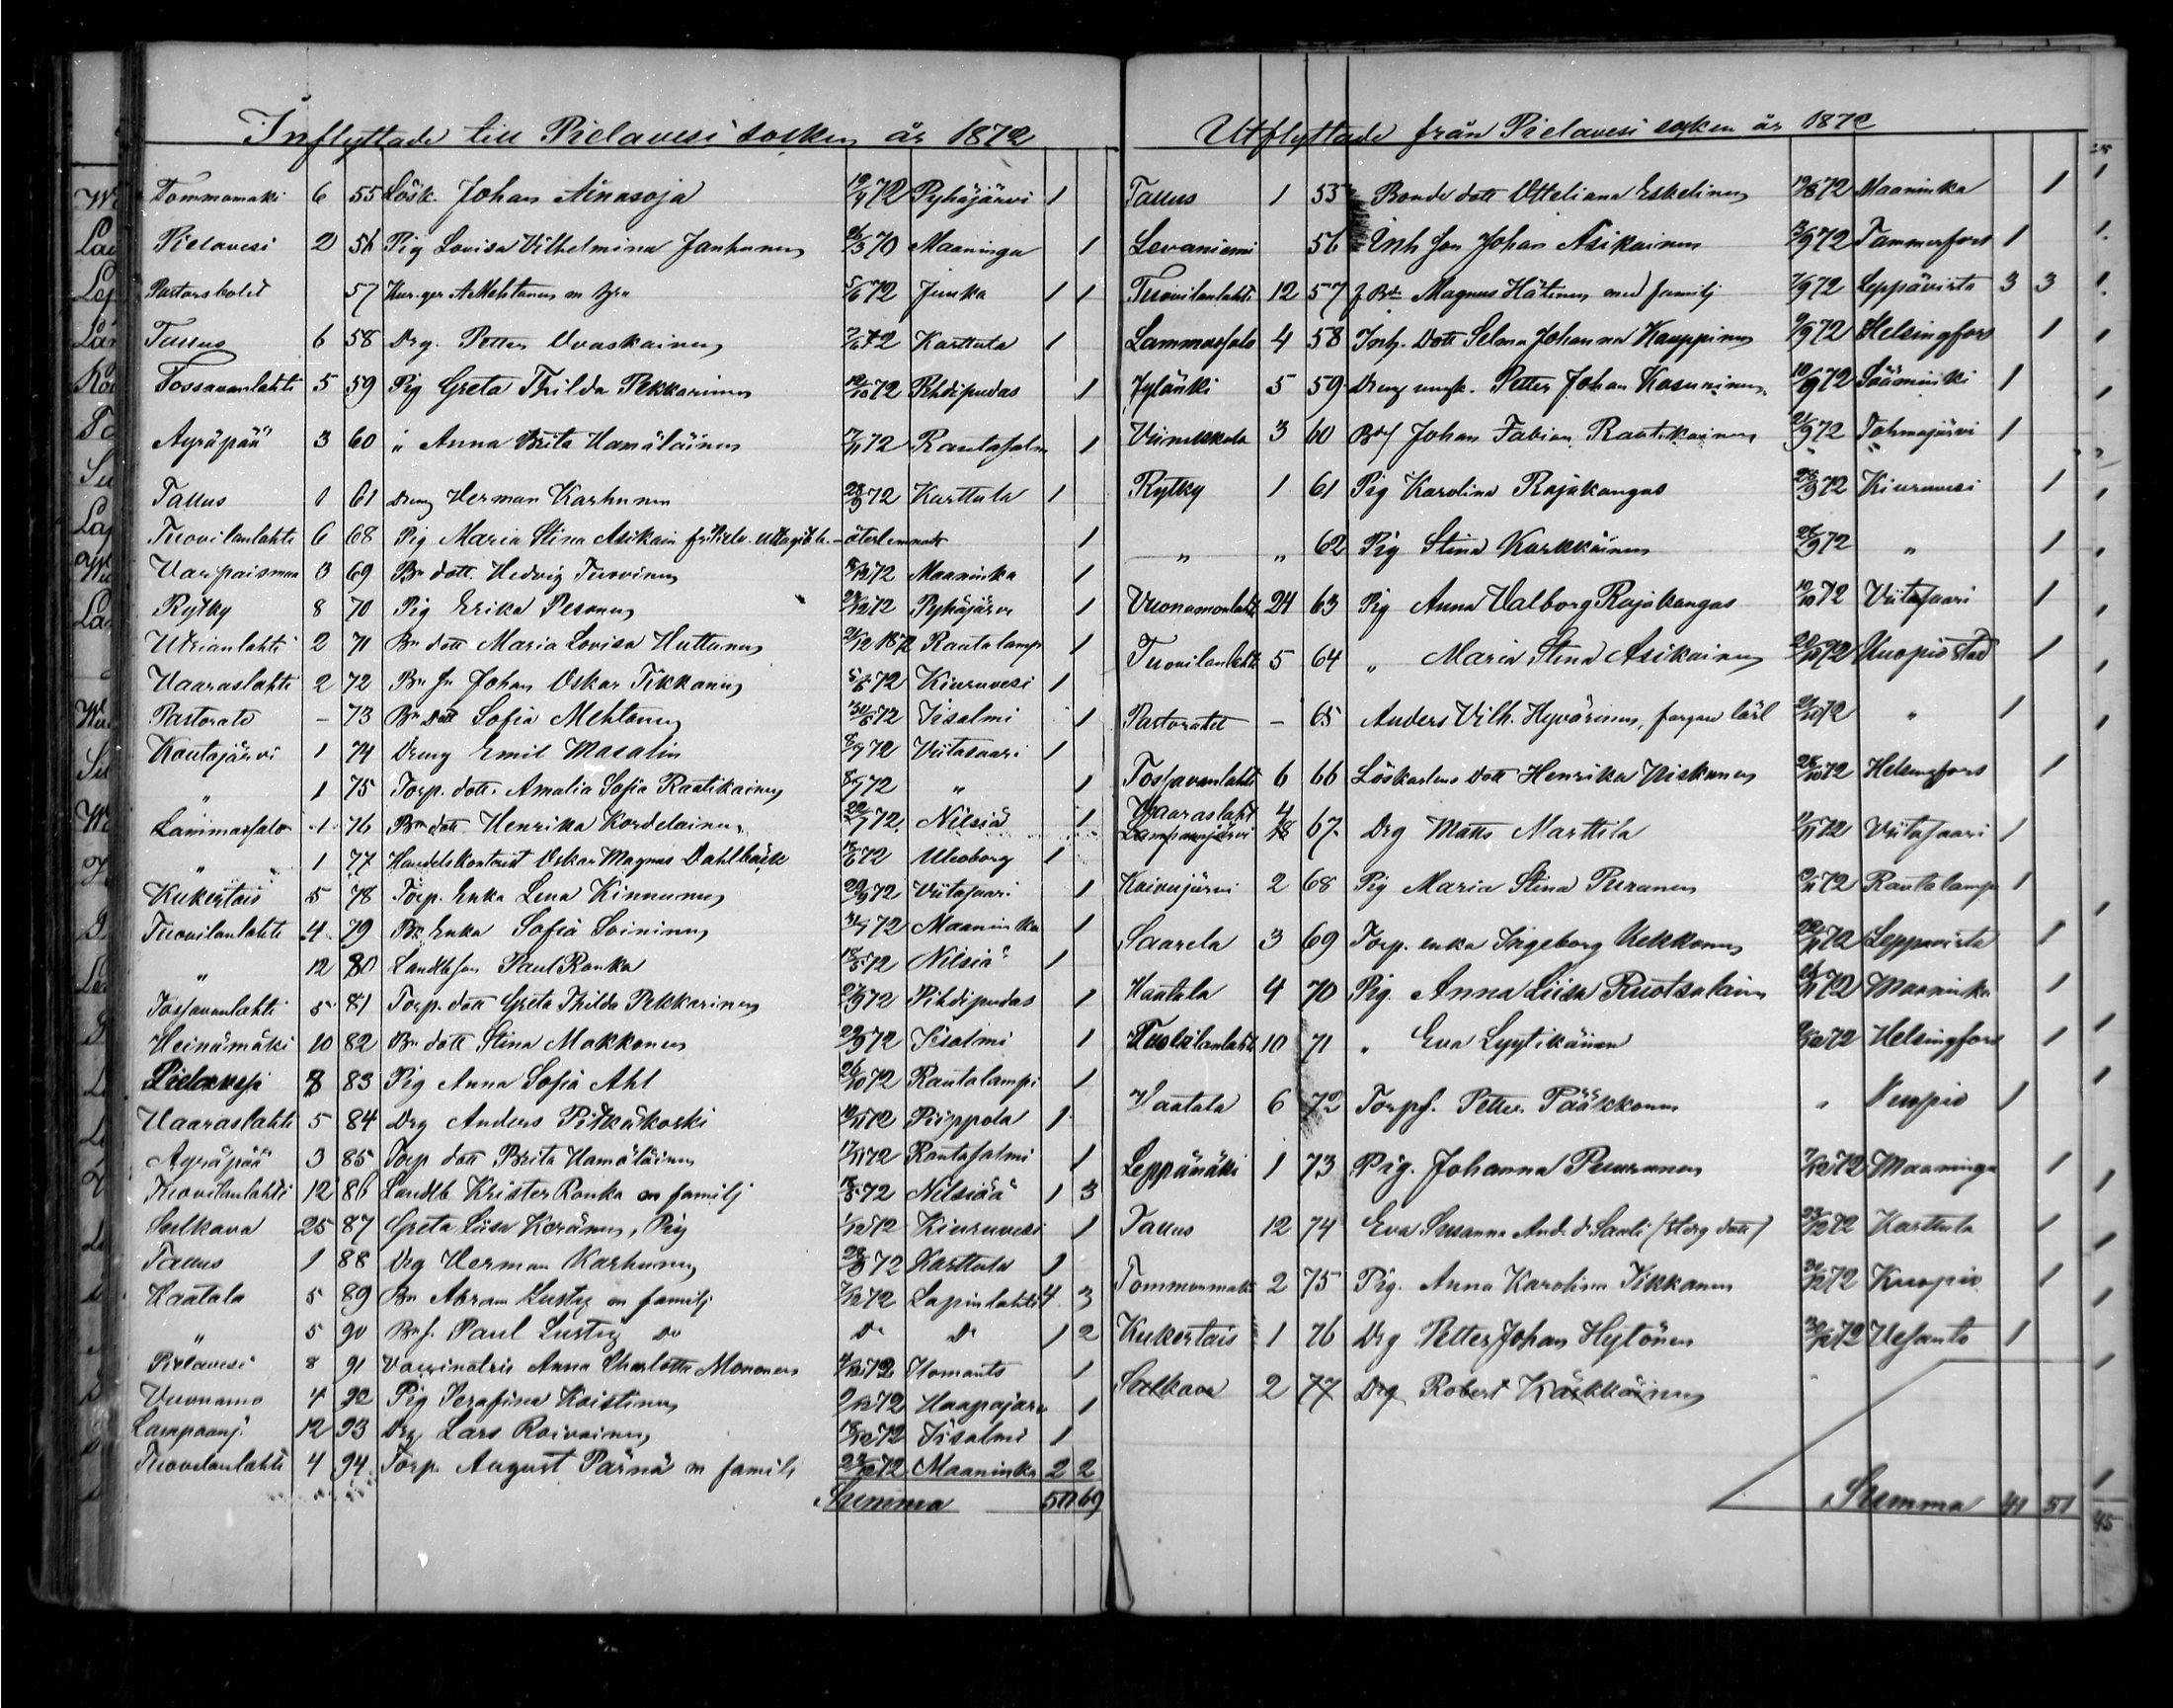 Inflyttade till Pielavesi socken år 1872
Tommomäki 6 55 Lösk. Johan Ainasoja 72 Pyhäjärvi 1
Pielavesi 2 56 Pig Lovisa Vilhelmina Janhunen 26/3 70 Maaninga 1
Pastorsbolet 57 A Mehtonen m 5/6 72 1 1
Tallus 6 58 Drg. Petter Ovaskainen 72 Karttula 1
Tossavanlahti 5 59 Pig Greta Thilda Pekkarinen 72 Pihdipudas 1
Ayräpää 3 60 " Anna Brita Hämäläinen 72 Rautasalm 1
Tallus 1 61 Dreng Herman Karhunen 28/9 72 Karttula 1
Tuovilanlahti 6 68 Pig Maria Stina Asikain återlemnadt 1
Varpaismaa 3 69 Bn dott. Hedvig Tuovinen 72 Maaninka 1
Rytky 8 70 Pig Erika Pesonen 72 Pyhäjärvi 1
Utrianlahti 2 71 Bn dott Maria Lovisa Huttunen 21/12 1872 Rautalamp 1
Vaaraslahti 2 72 Bn sn Johan Oskar Tikkanen 72 Kiuruvesi 1
Pastorate - 73 Bn Dott Sofia Mehtonen 72 Iisalmi 1
Koutajärvi 1 74 Dreng Emil Masalin 8/7 72 Viitasaari 1
" 1 75 Torp. dott. Amalia Sofia Raatikainen 8/7 72 " 1
Lammassalo 1 76 Bn dott. Henrika Kordelainen 22/7 72 Nilsiä 1
" 1 77 Handelskontorist Oskar Magnus Dahlbäck 72 Uleoborg 1
Kukertais 5 78 Torp. Enka Lena Kinnunen 29/9 72 Viitasaari 1
Tuovilanlahti 4 79 Bn Enka Sofia Soininen 72 Maaninka 1
" 12 80 Landbson Paul Ronka 18/5 72 Nilsiä 1
Tossavanlahti 5 81 Torp. dott Greta Thilda Pekkarinen 27/9 72 Pihdipudas 1
Heinämäki 10 82 Bn dott Stina Makkonen 29/9 72 Iisalmi 1
Pielavesi 8 83 Pig Anna Sofia Ahl 26/10 72 Rautalampi 1
Vaaraslahti 5 84 Drg Anders Pitkäkoski 72 Piippola 1
Ayräpää 3 85 Torp dott Brita Hämäläinen 17/11 72 Rautasalmi 1
Tuovilanlahti 12 86 Landtb Krister Ronka m familj 18/5 72 Nilsiää 1 3
Sulkava 25 87 Greta Liisa Keränen, Pig 1/12 72 Kiuruvesi 1
Tallus 1 88 Drg Herman Karhunen 28/9 72 Karttula 1
Haatala 5 89 Bn Abram Lustig m familj 7/12 72 Lapinlahti 4 3
" 5 90 Bn s. Paul Lustig Do Do Do 1 2
Pielavesi 8 91 Vaccinatris Anna Charlotta Mononen 72 Ilomants 1
Vuonamo 4 92 Pig Serafina Koistinen 9/12 72 Haapajärvi 1
Lampaanj. 12 93 Drg Lars Roivainen 18/12 72 Iisalmi 1
Tuovilanlahti 4 94 Torp. August Pärnä m familj 72 Maaninka 2 2
Summa 50 69
Utflyttade från Pielavesi socken år 1872
Tallus 1 55 Bonde dott Otteliana Eskelinen 19/8 72 Maaninka 1
Levaniemi 56 Inh son Johan Asikainen 3/9 72 Tammerfors 1
Tuovilanlahti 12 57 Magnus Hätinen med familj 7/9 72 Leppävirta 3 3
Lammassalo 4 58 Inh. Dott Selma Johanna Kauppinen 9/9 72 Helsingfors 1
Jylänki 5 59 Dreng Petter Johan Kosuninen 10/9 72 Sääminki 1
Viinikkala 3 60 Johan Fabian Rautikainen 21/9 72 Tohmajärvi 1
Rytky 1 61 Pig Karolina Rajakangas 28/9 72 Kiuruvesi 1
" " 62 Pig Stina Karkkäinen 28/9 72 " 1
Vuonamonlahti 24 63 Pig Anna Valborg Rajakangas 10/10 72 Viitasaari 1
Tuovilanlahti 5 64 " Maria Stina Asikainen 72 Kuopio stad 1
Pastoratet - 65 Anders Vilh. Hyvärinen, färgare lärl 72 " 1
Tossavanlahti 6 66 Löskarlens Dott Henrika Niskanen 28/10 72 Helsingfors 1
Vaaraslaht 4
Lampaanjärvi 18 67 Drg Matts Marttila 72 Viitasaari 1
Koivujärvi 2 68 Pig Maria Stina Puranen 72 Rautalamp 1
Saarela 3 69 Torp. enka Ingeborg Kekkonen 72 Leppävirta 1
Haatala 4 70 Pig. Anna Liisa Ruotsalain 72 Maaninka 1
Tuovilanlahti 10 71 " Eva Lyytikäinen 72 Helsingfors 1
Haatala 6 72 Torps. Petter Pääkkonen " Kuopio 1
Leppämäki 1 73 Pig. Johanna Puuronen 7/12 72 Maaninga 1
Tallus 12 74 Eva Susanna And. dr Sauli 23/12 72 Karttula 1
Tommonmäki 2 75 Pig. Anna Karolina Tikkanen 72 Kuopio 1
Kukertais 1 76 Drg Petter Johan Hytönen 72 Vesanto 1
Sulkava 2 77 Drg Robert Kärkkäinen
Summa 41 51